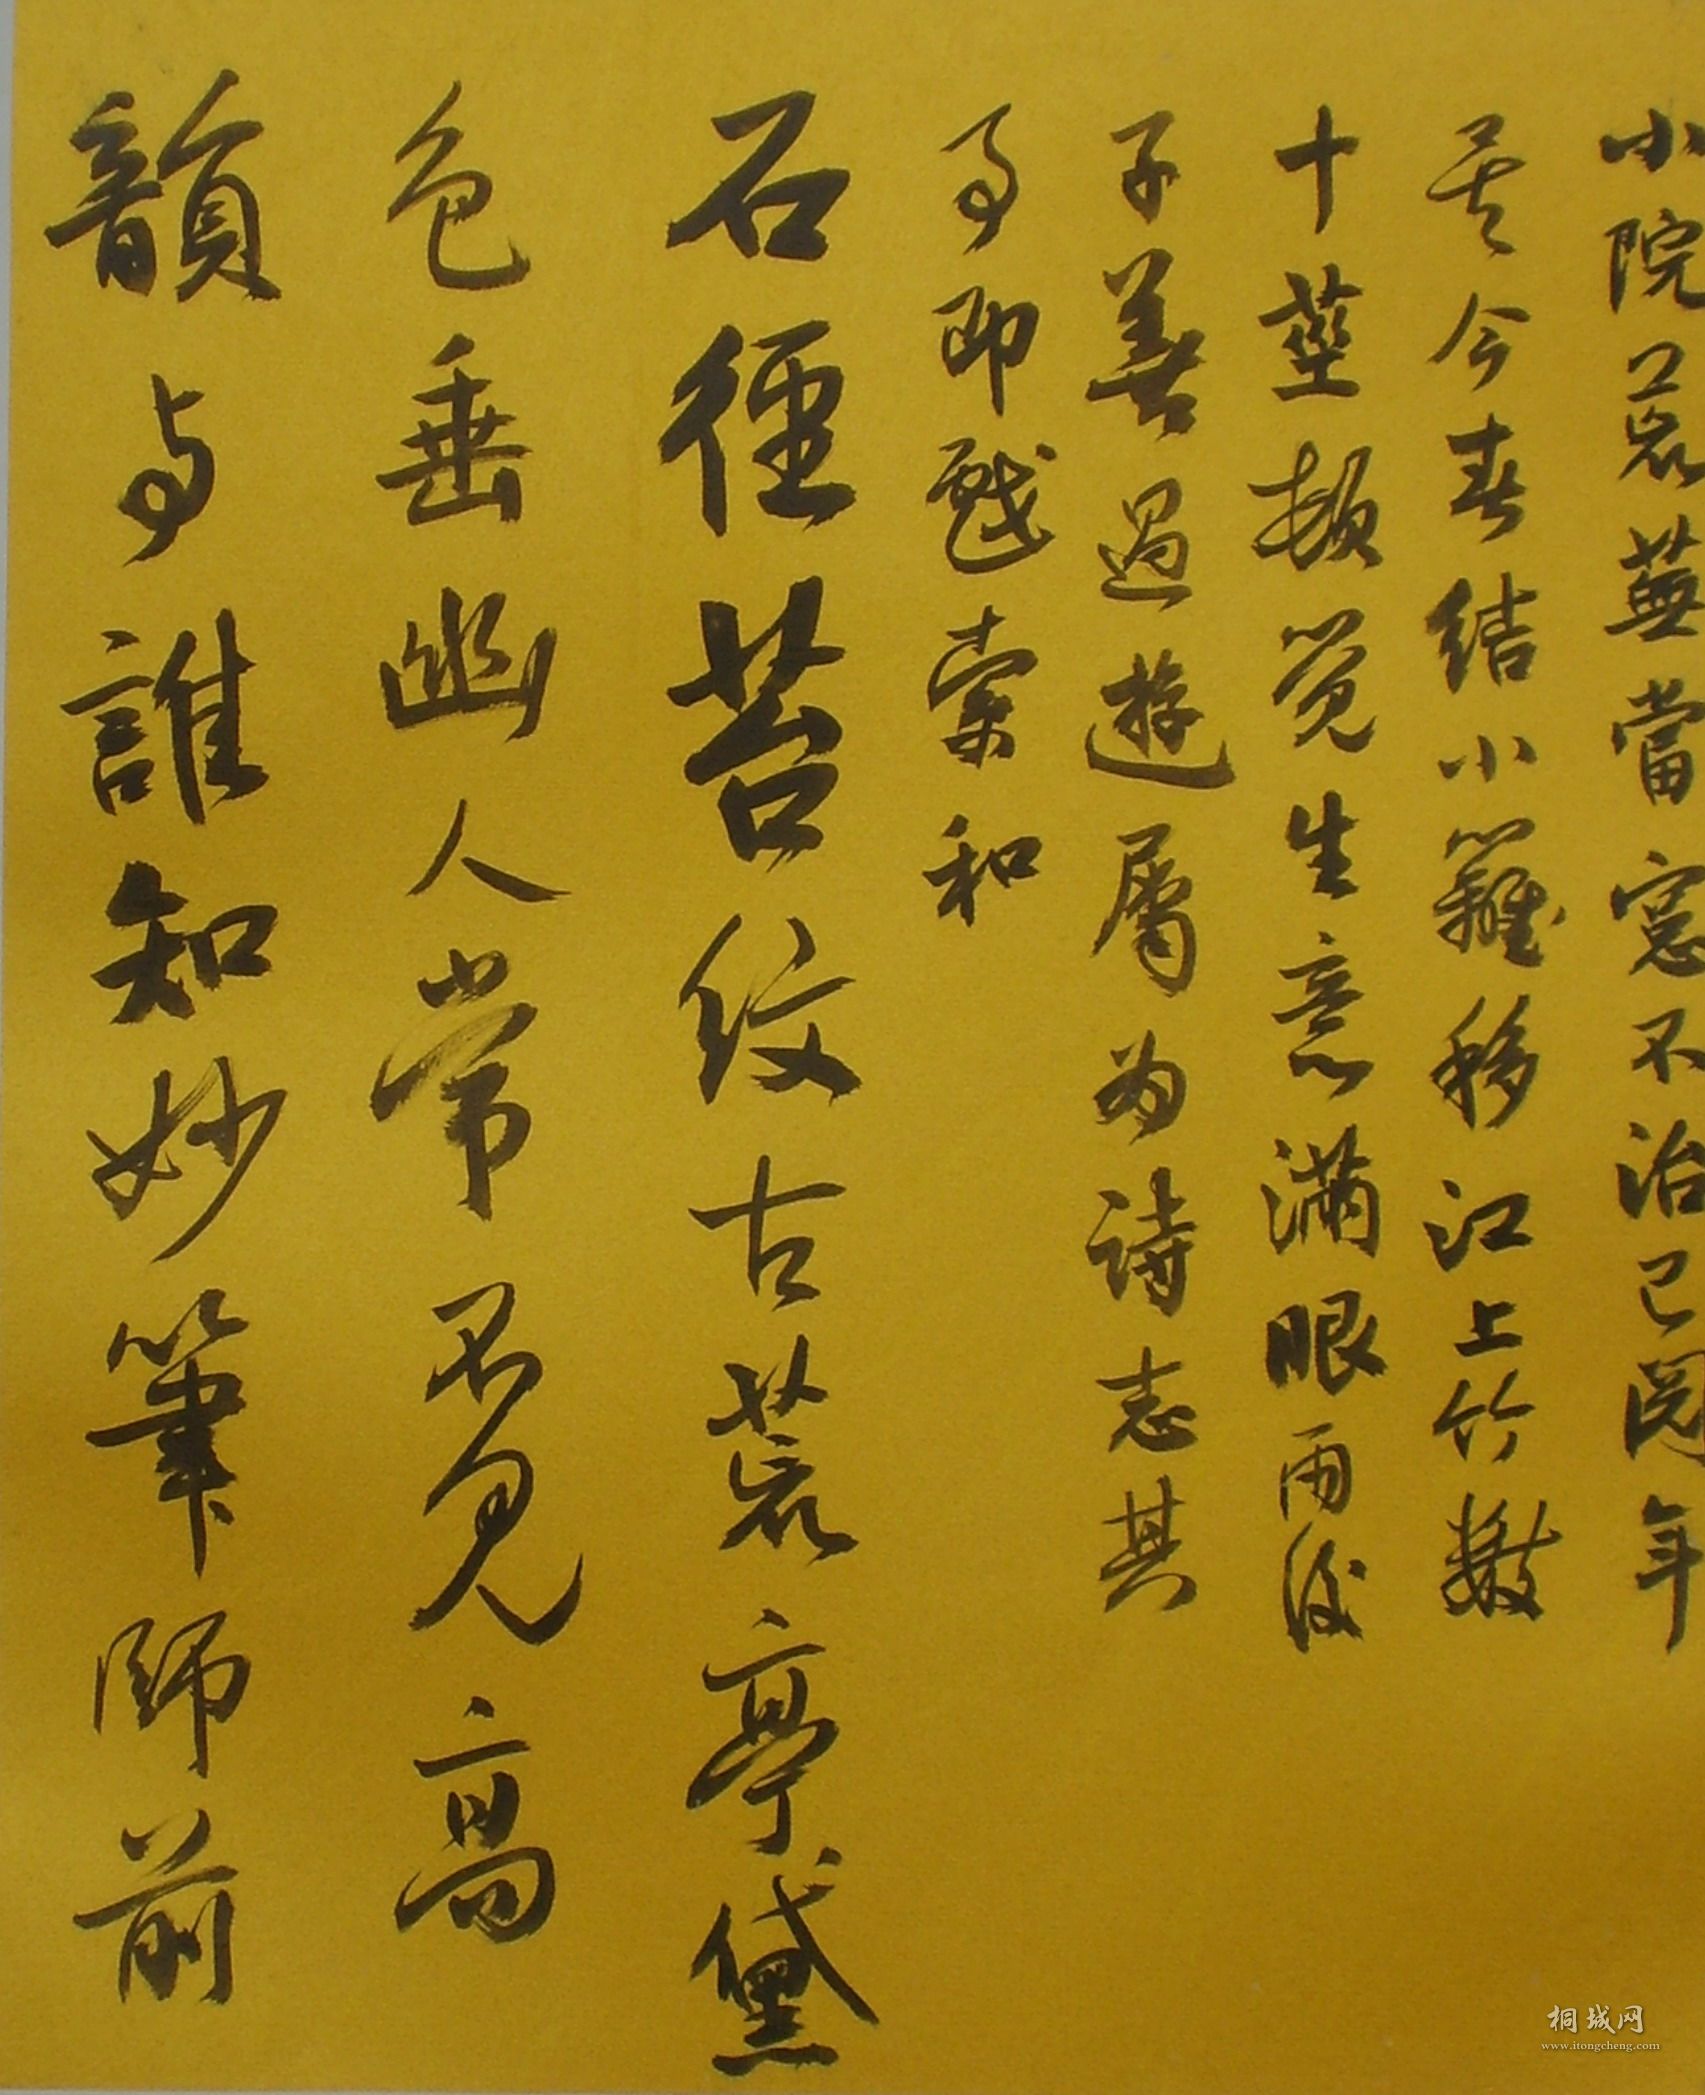 小院荒蕪當窓不治已閲年
矣今春結小籬移江上竹數
十莖頓覺生意滿眼雨後
子善過遊屬為詩志其
事即戲索和
石徑苔紋古荒亭黛
色垂幽人常不見高
韻與誰知妙筆師前
桐城网
www.itongcheng.com